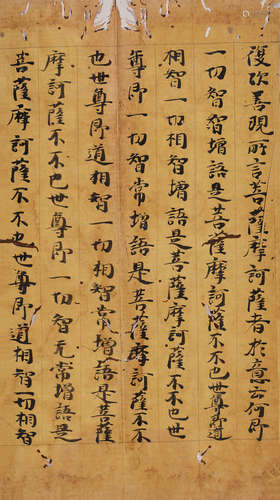 復次善現所言菩薩摩訶薩者於意云何即
一切智智增語是菩薩摩訶薩不不也世尊即道
相智一切相智增語是菩薩摩訶薩不不也世
尊即一切智常增語是菩薩摩訶薩不不
也世尊即道相智一切相智常增語是菩薩
摩訶薩不不也世尊即一切智无常增語是
菩薩摩訶薩不不也世尊即道相智一切相智